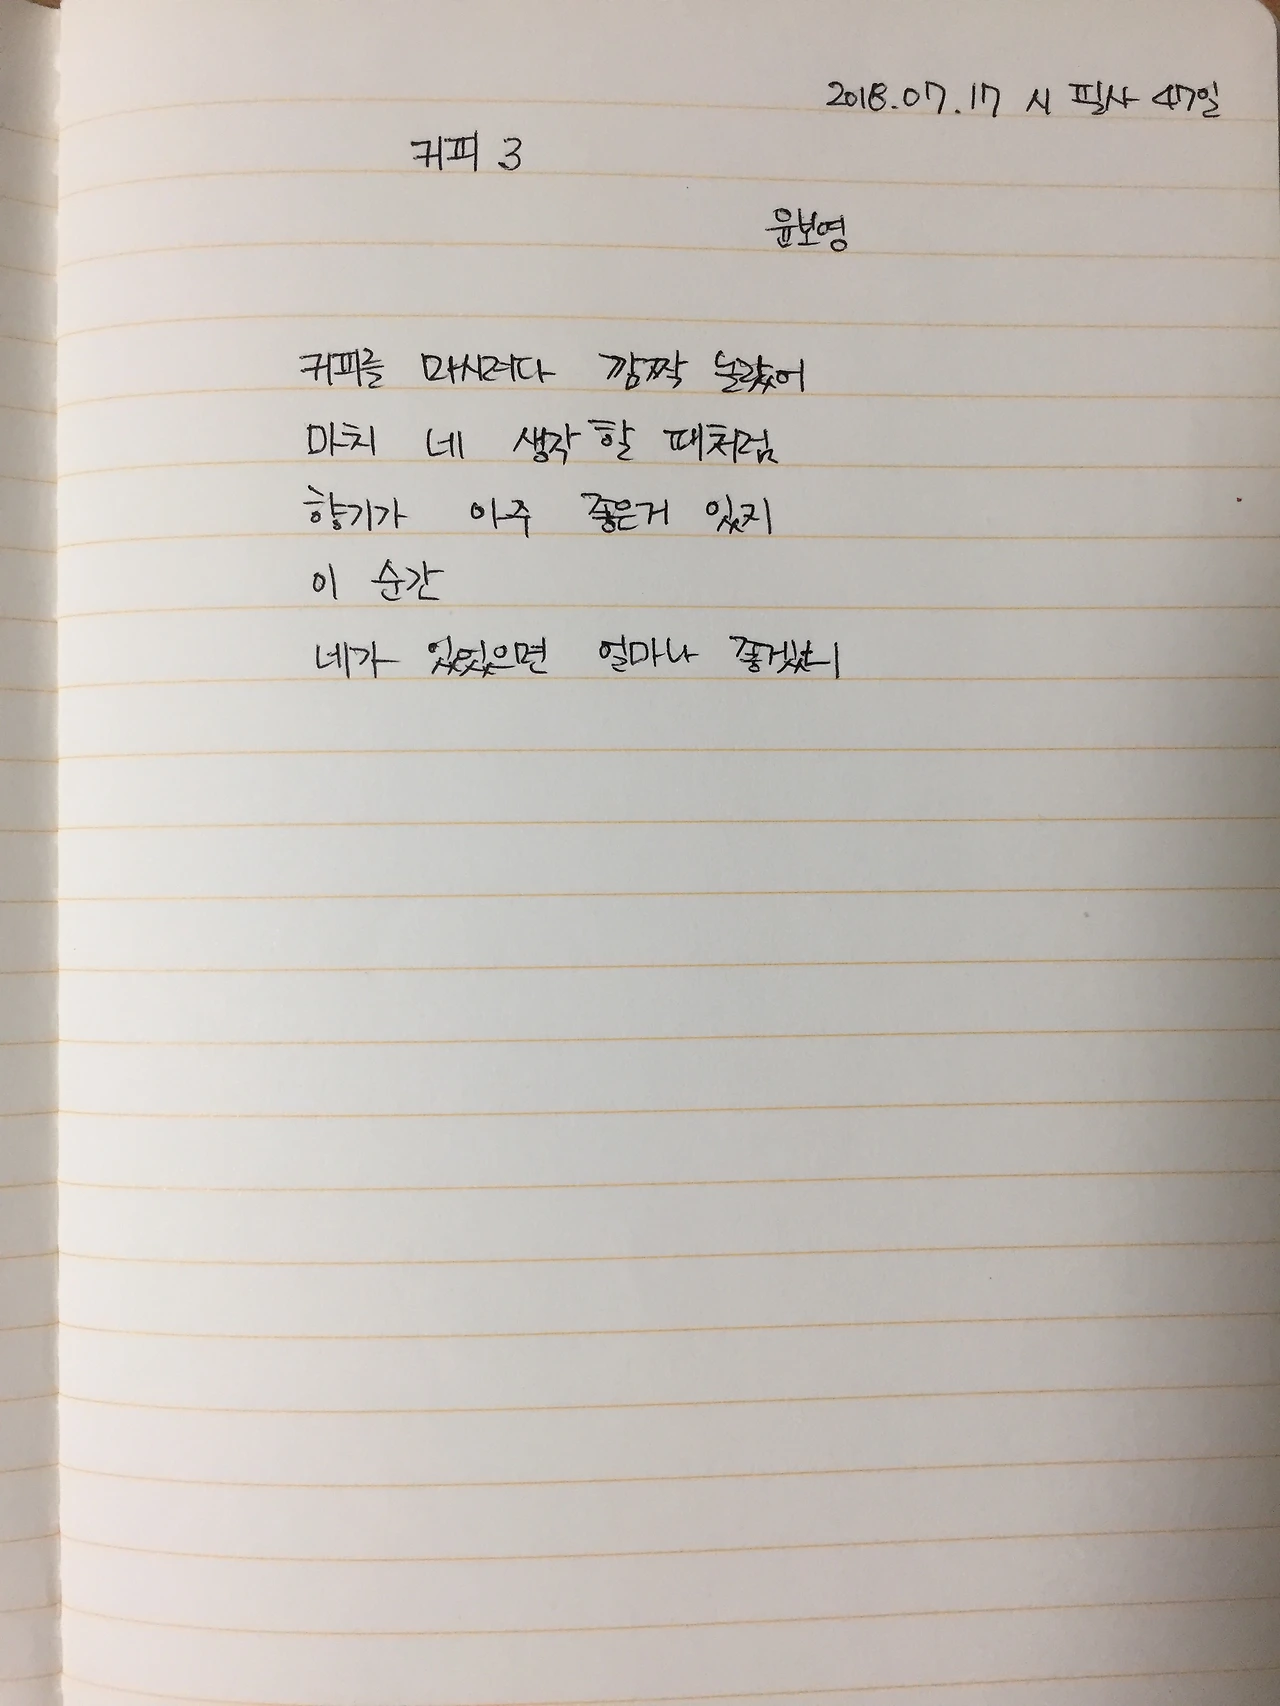 2018.07.17 시 필사 47일
커피 3
윤보영
커피를 마시려다 깜짝 놀랐어
마치 네 생각할 때처럼
향기가 아주 좋은거 있지
이 순간
네가 있었으면 얼마나 좋겠니